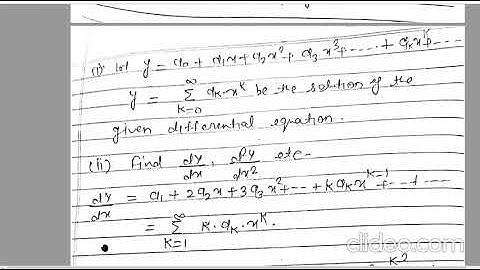 (i) let y = a0 + a1x + a2x² + a3x³ + ..... + akx^k + ---
y = ∞ Σ k=0 ak.x^k be the solution of the
given differential equation.
(ii) Find dy/dx, d²y/dx² etc-
dy/dx = a1 + 2a2x + 3a3x² + --- + k akx^k=1 + --- + ---
= ∞ Σ k=1 k.ak.x^k.
clideo.com
k²